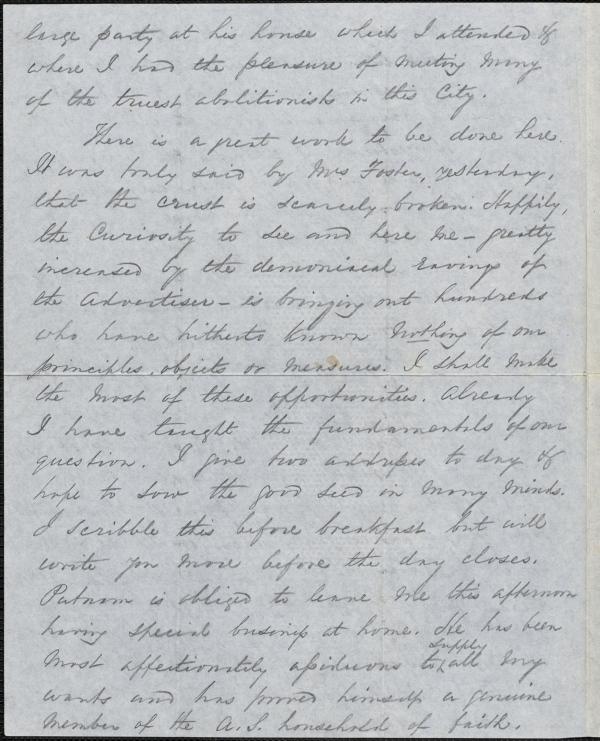 large party at his house which I attended &
where I had the pleasure of meeting many
of the truest abolitionists in this City.
There is a great work to be done here.
It was truly said by Mrs Foster, yesterday,
that the crust is scarcely broken. Happily,
the Curiosity to see and here me – greatly
increased by the demoniacal ravings of
the Advertiser – is bringing out hundreds
who have hitherto known nothing of our
principles, objects or measures. I shall make
the most of these opportunities. Already
I have taught the fundamentals of our
question. I give two addresses to day &
hope to sow the good seed in many minds.
I scribble this before breakfast but will
write you more before the day closes.
Putnam is obliged to leave me this afternoon
having special business at home. He has been
most affectionately assiduous to supply all my
wants and has proved himself a genuine
member of the A.S. household of faith.